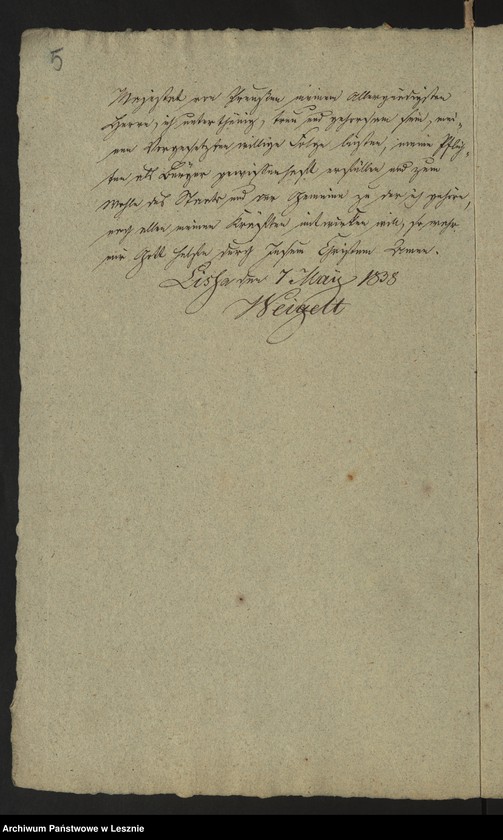 5
Majestät von Preußen meinem Allergnädigsten
Herrn, ich unterthänig, treu und gehorsam sein, mei-
nen Vorgesetzten willige Folge leisten, meine Pflich-
ten als Bürger gewissenhaft erfüllen und zum
Wohle des Staats und der Gemeine zu der ich gehöre,
nach allen meinen Kräften mitwirken will, so wahr
mir Gott helfe durch Jesum Christum Amen.
Lissa den 7 März 1838
Weigelt
Archiwum Państwowe w Lesznie